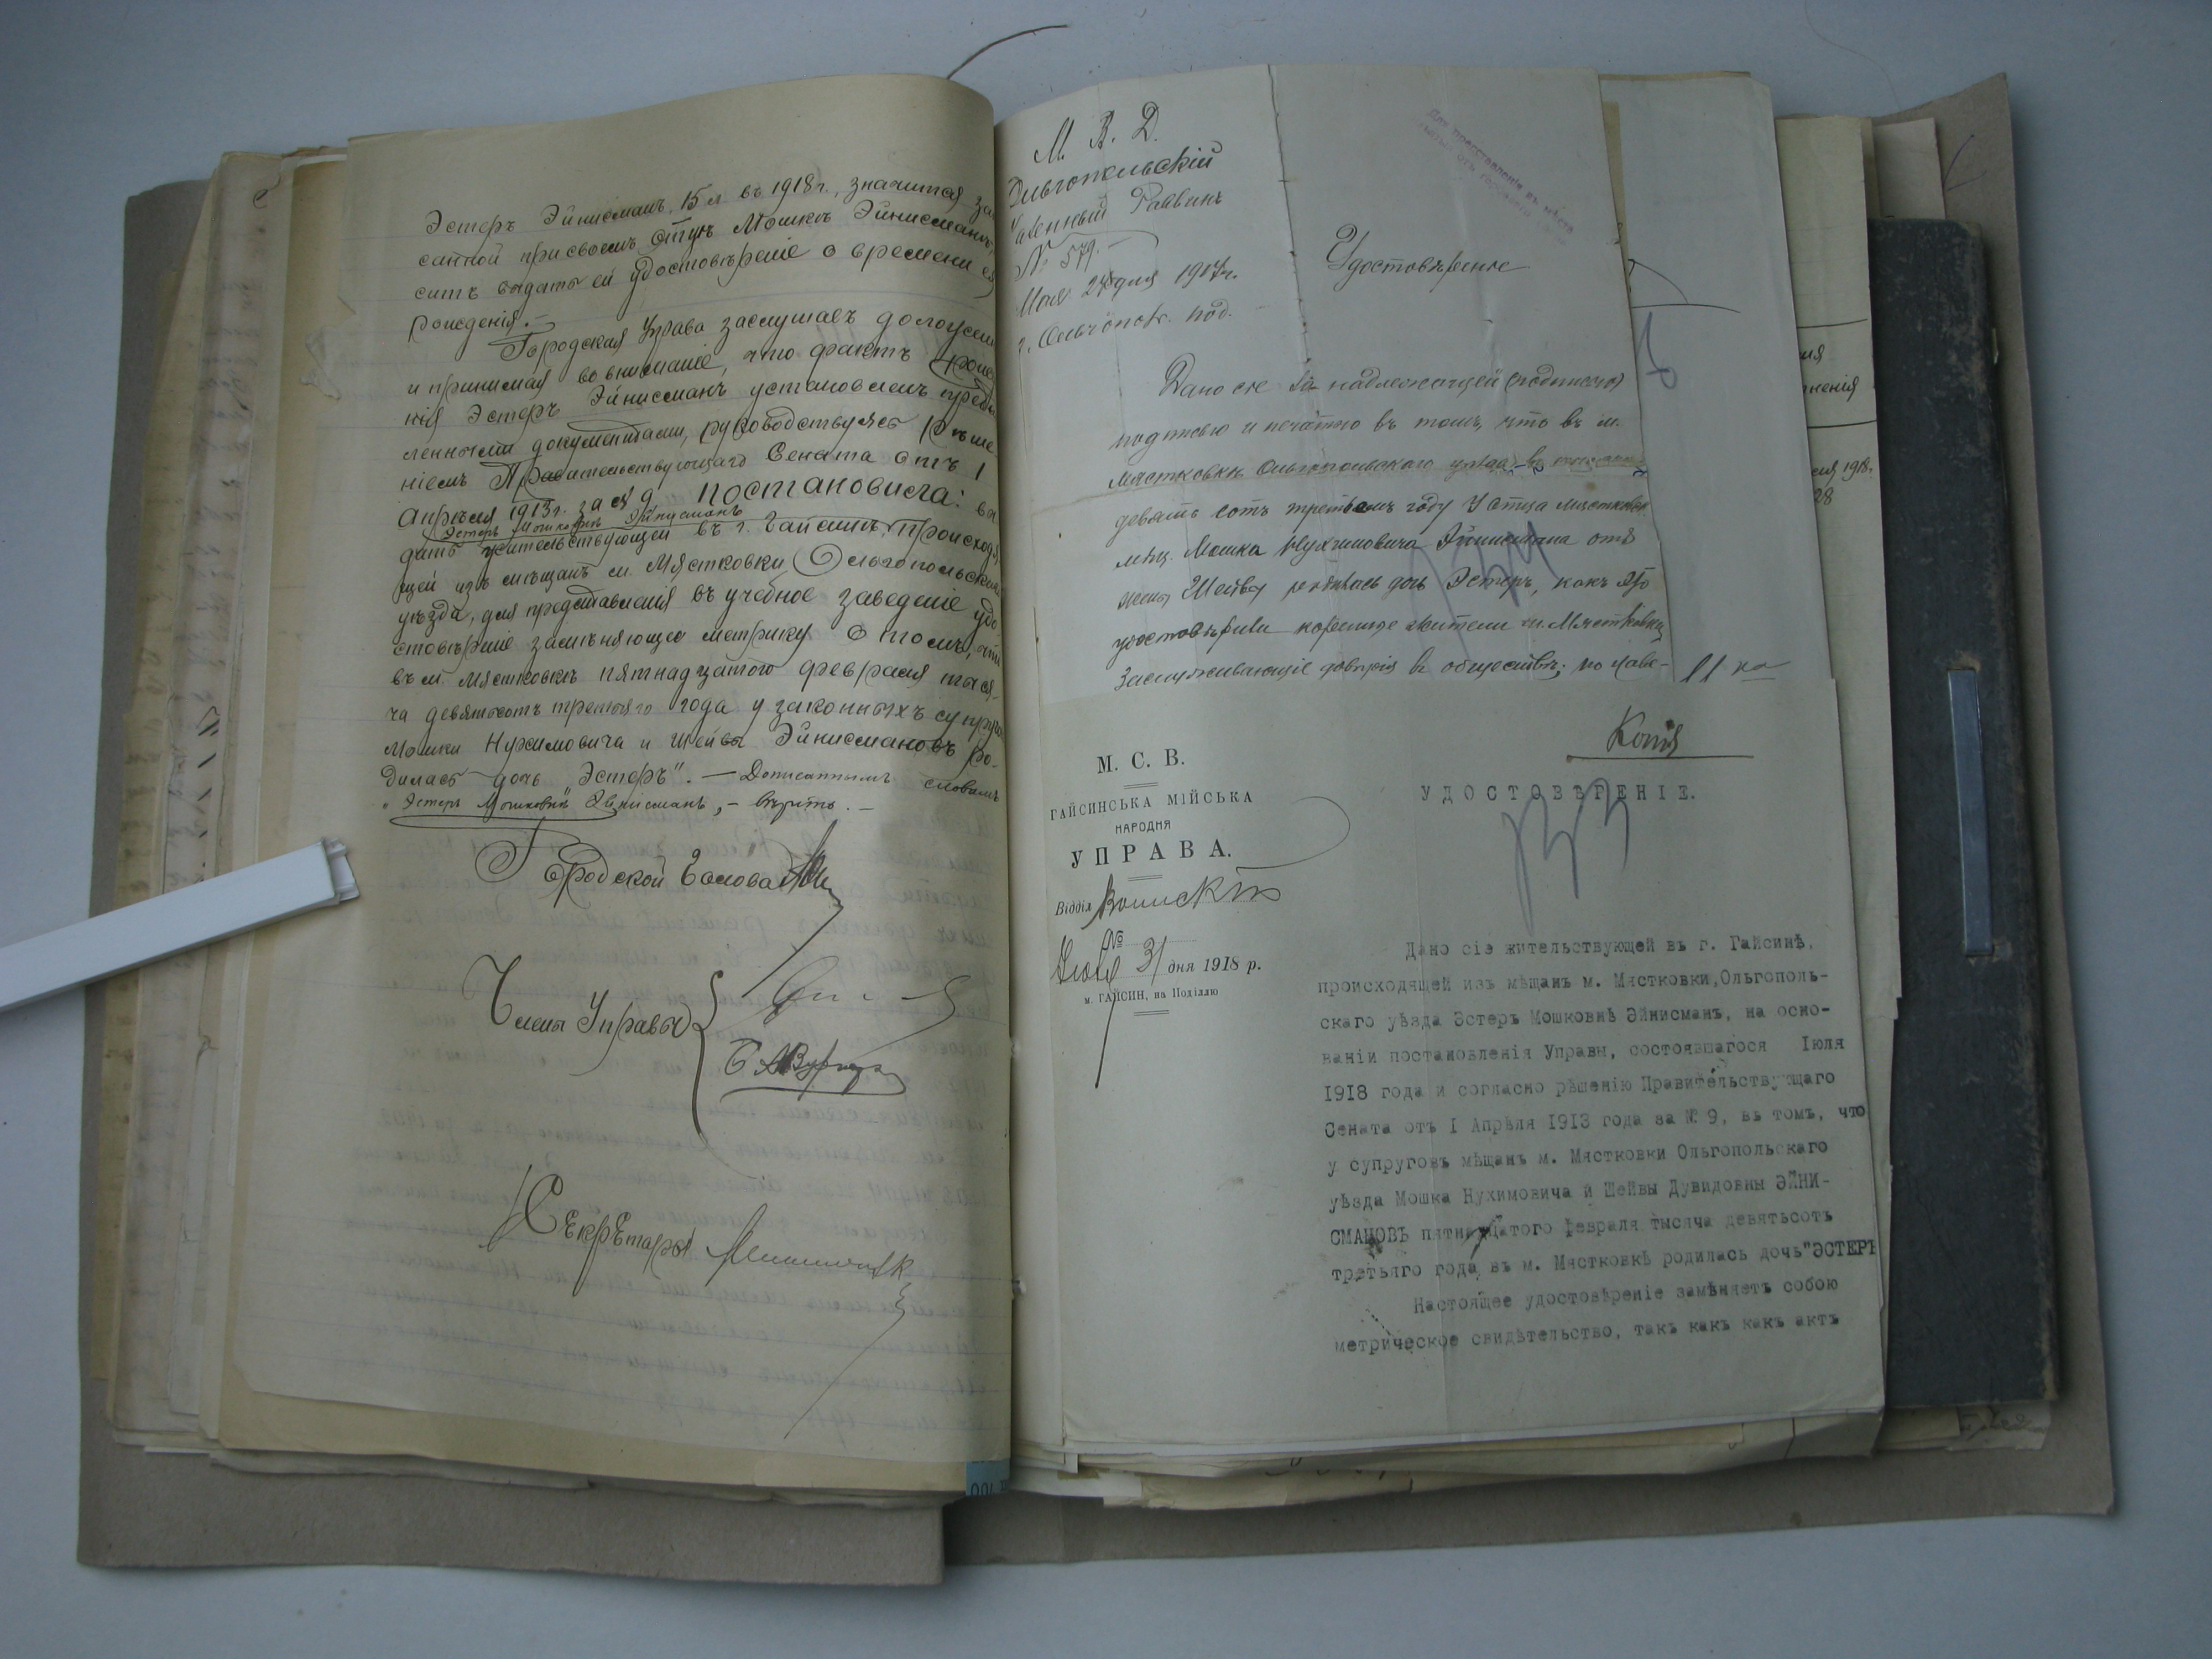 Эстеръ Эйнисманъ, 15 л. въ 1918 г., значится за
санной при своемъ отцѣ Мошкѣ Эйнисманѣ,
ситъ выдать ей удостовѣреніе о времени ея
рожденія.—
Городская Управа заслушавъ доложен
и принимая во вниманіе, что фактъ рожде
нія Эстеръ Эйнисманъ установленъ предъ
ленными документами, руководствуясь рѣше
ніемъ Правительствующаго Сената отъ 1
Апрѣля 1913 г. за № 9, постановила: вы
Эстеръ Мошковнѣ Эйнисманъ
дать жительствующей въ г. Гайсинѣ, происходя
щей изъ мѣщанъ м. Мястковки, Ольгопольскаго
уѣзда, для представленія въ учебное заведеніе удо
стовѣреніе замѣняющее метрику о томъ, что
въ м. Мястковкѣ пятнадцатого февраля тыся-
ча девятьсотъ третьяго года у законныхъ супруго
Мошки Нухимовича и Шейвы Эйнисмановъ ро-
дилась дочь Эстеръ".— Дописаннымъ словамъ
"Эстеръ Мошковнѣ" Эйнисманъ,— вѣрить.—
Городской Голова
Члены Управы
Секретарь
М. В. Д.
Ольгопольскій
Раввинъ
№ 579.—
Мая дня 1917 г.
г. Ольгополь. под.
Удостовѣреніе
Дано сіе за надлежащей (подписью)
подписью и печатью въ томъ, что въ м.
Мястковкѣ Ольгопольскаго уѣзда
девять сотъ третьемъ году у отца мястковск.
мѣщ. Мошка Нухимовича Эйнисмана отъ
жены Шейвы родилась дочь Эстеръ, какъ это
удостовѣрили коренные жители м. Мястковки
заслуживающіе довѣрія въ обществѣ; по
М. С. В.
ГАЙСИНСЬКА МІЙСЬКА
НАРОДНЯ
УПРАВА.
Відділ
№
Іюля 31 дня 1918 р.
м. ГАЙСИН, на Поділлю
Копія
УДОСТОВѢРЕНІЕ.
Дано сіе жительствующей въ г. Гайсинѣ,
происходящей изъ мѣщанъ м. Мястковки,Ольгополь-
скаго уѣзда Эстеръ Мошковнѣ Эйнисманъ, на осно-
ваніи постановленія Управы, состоявшагося Іюля
1918 года и согласно рѣшенію Правительствующаго
Сената отъ I Апрѣля 1913 года за № 9, въ томъ, что
у супруговъ мѣщанъ м. Мястковки Ольгопольскаго
уѣзда Мошка Нухимовича и Шейвы Дувидовны ЭЙНИ-
СМАНОВЪ пятнадцатого февраля тысяча девятьсотъ
третьяго года въ м. Мястковкѣ родилась дочь"ЭСТЕРЪ
Настоящее удостовѣреніе замѣняетъ собою
метрическое свидѣтельство, такъ какъ какъ актъ